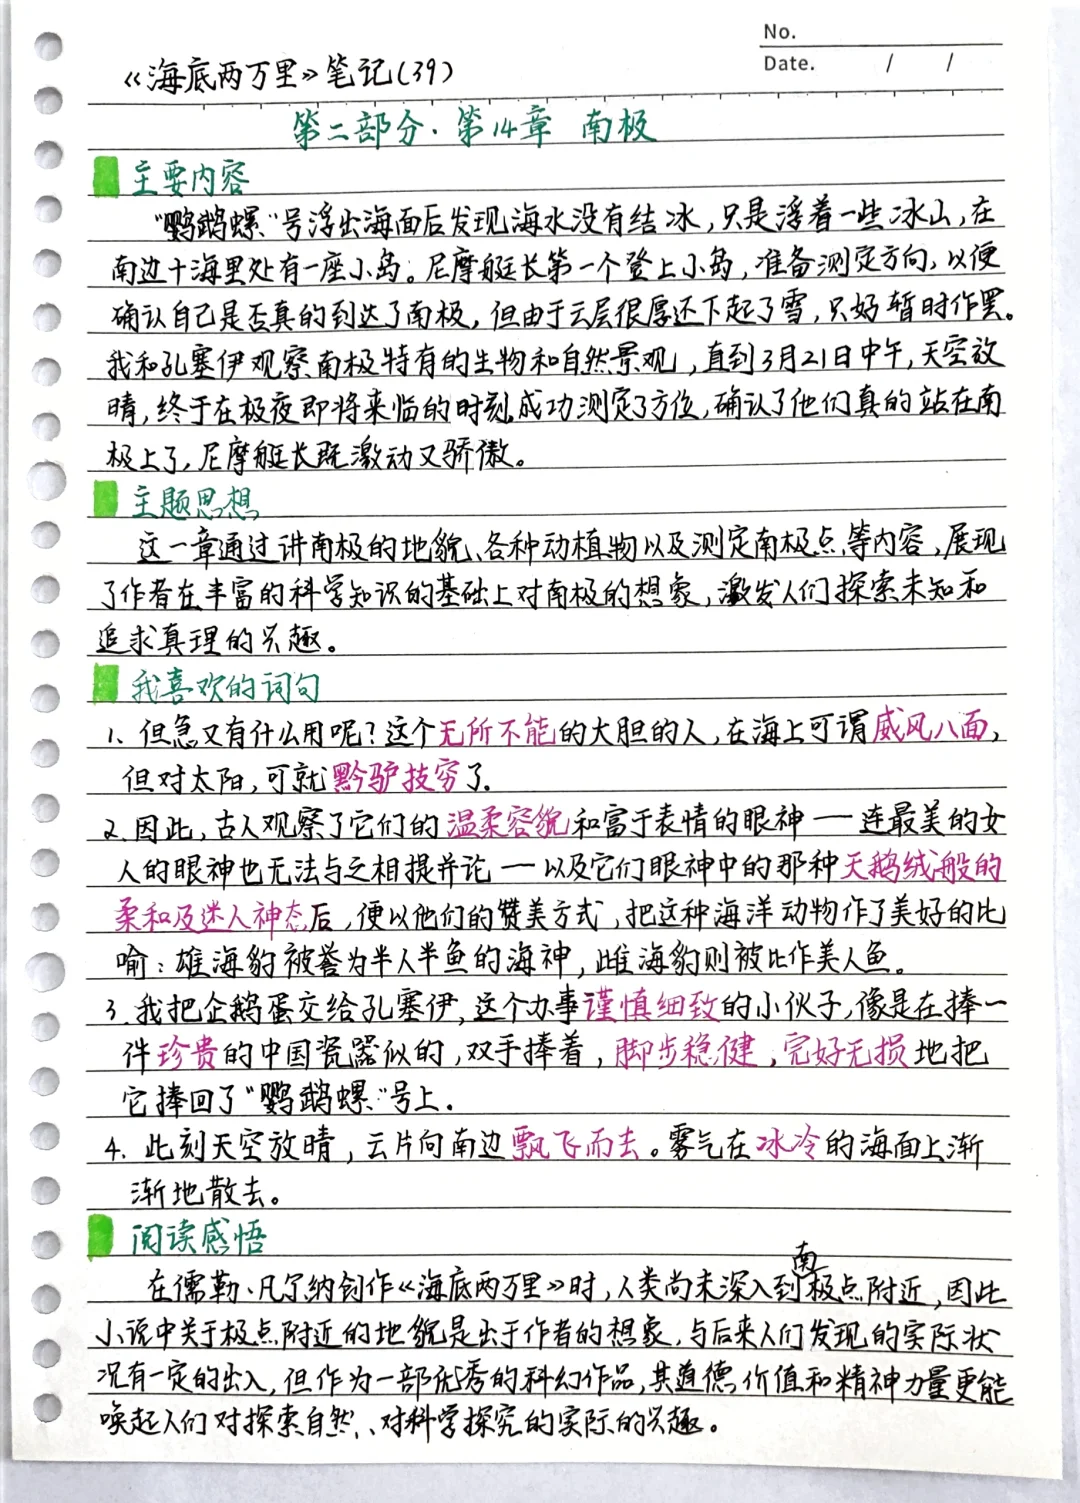 No.
Date. / /
《海底两万里》笔记(39)
第二部分·第14章 南极
主要内容
“鹦鹉螺”号浮出海面后发现海水没有结冰,只是浮着一些冰山,在
南边十海里处有一座小岛。尼摩艇长第一个登上小岛,准备测定方向,以便
确认自己是否真的到达了南极,但由于云层很厚还下起了雪,只好暂时作罢。
我和孔塞伊观察南极特有的生物和自然景观,直到3月21日中午,天空放
晴,终于在极夜即将来临的时刻成功测定了方位,确认了他们真的站在南
极上了,尼摩艇长既激动又骄傲。
主题思想
这一章通过讲南极的地貌、各种动植物以及测定南极点等内容,展现
了作者在丰富的科学知识的基础上对南极的想象,激发人们探索未知和
追求真理的兴趣。
我喜欢的词句
1、但急又有什么用呢?这个无所不能的大胆的人,在海上可谓威风八面,
但对太阳,可就黔驴技穷了.
2.因此,古人观察了它们的温柔容貌和富于表情的眼神——连最美的女
人的眼神也无法与之相提并论——以及它们眼神中的那种天鹅绒般的
柔和及迷人神态后,便以他们的赞美方式,把这种海洋动物作了美好的比
喻:雄海豹被誉为半人半鱼的海神,雌海豹则被比作美人鱼。
3.我把企鹅蛋交给孔塞伊,这个办事谨慎细致的小伙子,像是在捧一
件珍贵的中国瓷器似的,双手捧着,脚步稳健,完好无损地把
它捧回了“鹦鹉螺”号上.
4.此刻天空放晴,云片向南边飘飞而去。雾气在冰冷的海面上渐
渐地散去。
阅读感悟
在儒勒·凡尔纳创作《海底两万里》时,人类尚未深入到南极点附近,因此
小说中关于极点附近的地貌是出于作者的想象,与后来人们发现的实际状
况有一定的出入,但作为一部优秀的科幻作品,其道德价值和精神力量更能
唤起人们对探索自然、对科学探究的实际的兴趣。